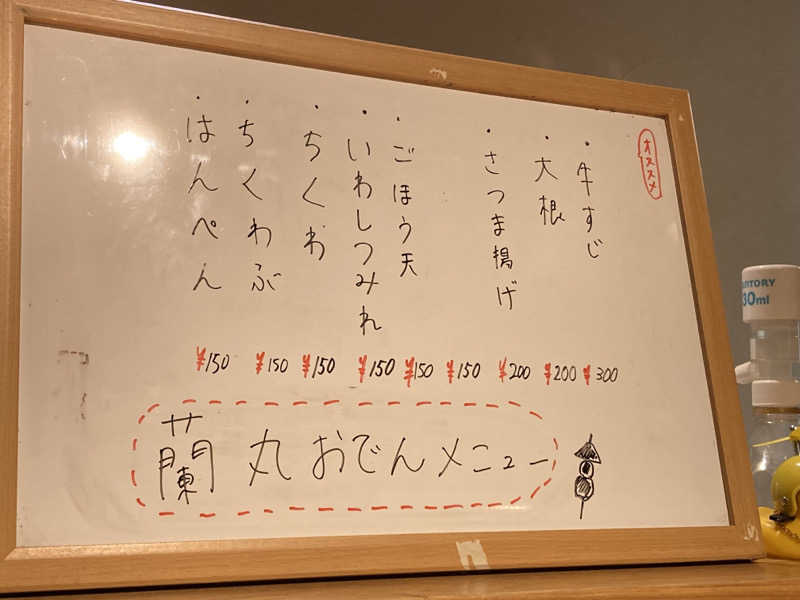 オススメ
・牛すじ
・大根
・さつま揚げ
・ごぼう天
・いわしつみれ
・ちくわ
・ちくわぶ
・はんぺん
¥150 ¥150 ¥150 ¥150 ¥150 ¥150 ¥200 ¥200 ¥300
蘭丸おでんメニュー
30ml